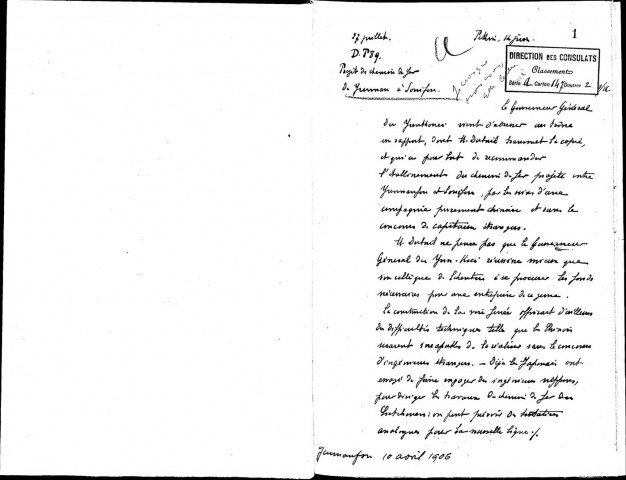 27 juillet. Pékin, 14 juin 1
D. P 89.
Projet de chemin de fer
de Yunnan à Souifou.
DIRECTION DES CONSULATS
Classement
Série A Carton 147 Dossier 2
Le Gouverneur Général
du Yunkouei vient d'adresser au trône
un rapport, dont M. Dubail transmet la copie,
et qui a pour but de recommander
l'établissement du chemin de fer projeté entre
Yunnanfou et Souifou, par les soins d'une
compagnie purement chinoise et sans le
concours de capitaux étrangers.
M. Dubail ne pense pas que le Gouverneur
Général du Yun-Kouei réussisse mieux que
son collègue de Setchouen à se procurer les fonds
nécessaires pour une entreprise de ce genre.
La construction de la voie ferrée offrirait d'ailleurs
des difficultés techniques telles que les Chinois
seraient incapables de la réaliser sans le concours
d'ingénieurs étrangers. — Déjà les Japonais ont
essayé de faire engager des ingénieurs nippons,
pour diriger les travaux du chemin de fer du
Setchouen : on peut prévoir des tentatives
analogues pour la nouvelle ligne ./.
Yunnanfou 10 avril 1906